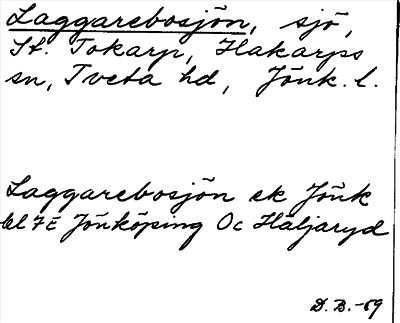 Laggarebosjön, sjö,
St. Tokarp, Hakarps
sn, Tveta hd, Jönk. l.
Laggarebosjön ek Jönk
bl 7E Jönköping Öc Häljaryd
D. B. -69